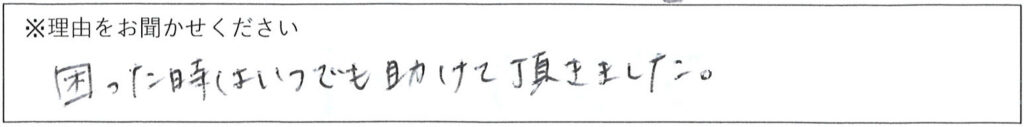 ※理由をお聞かせください
困った時はいつでも助けて頂きました。